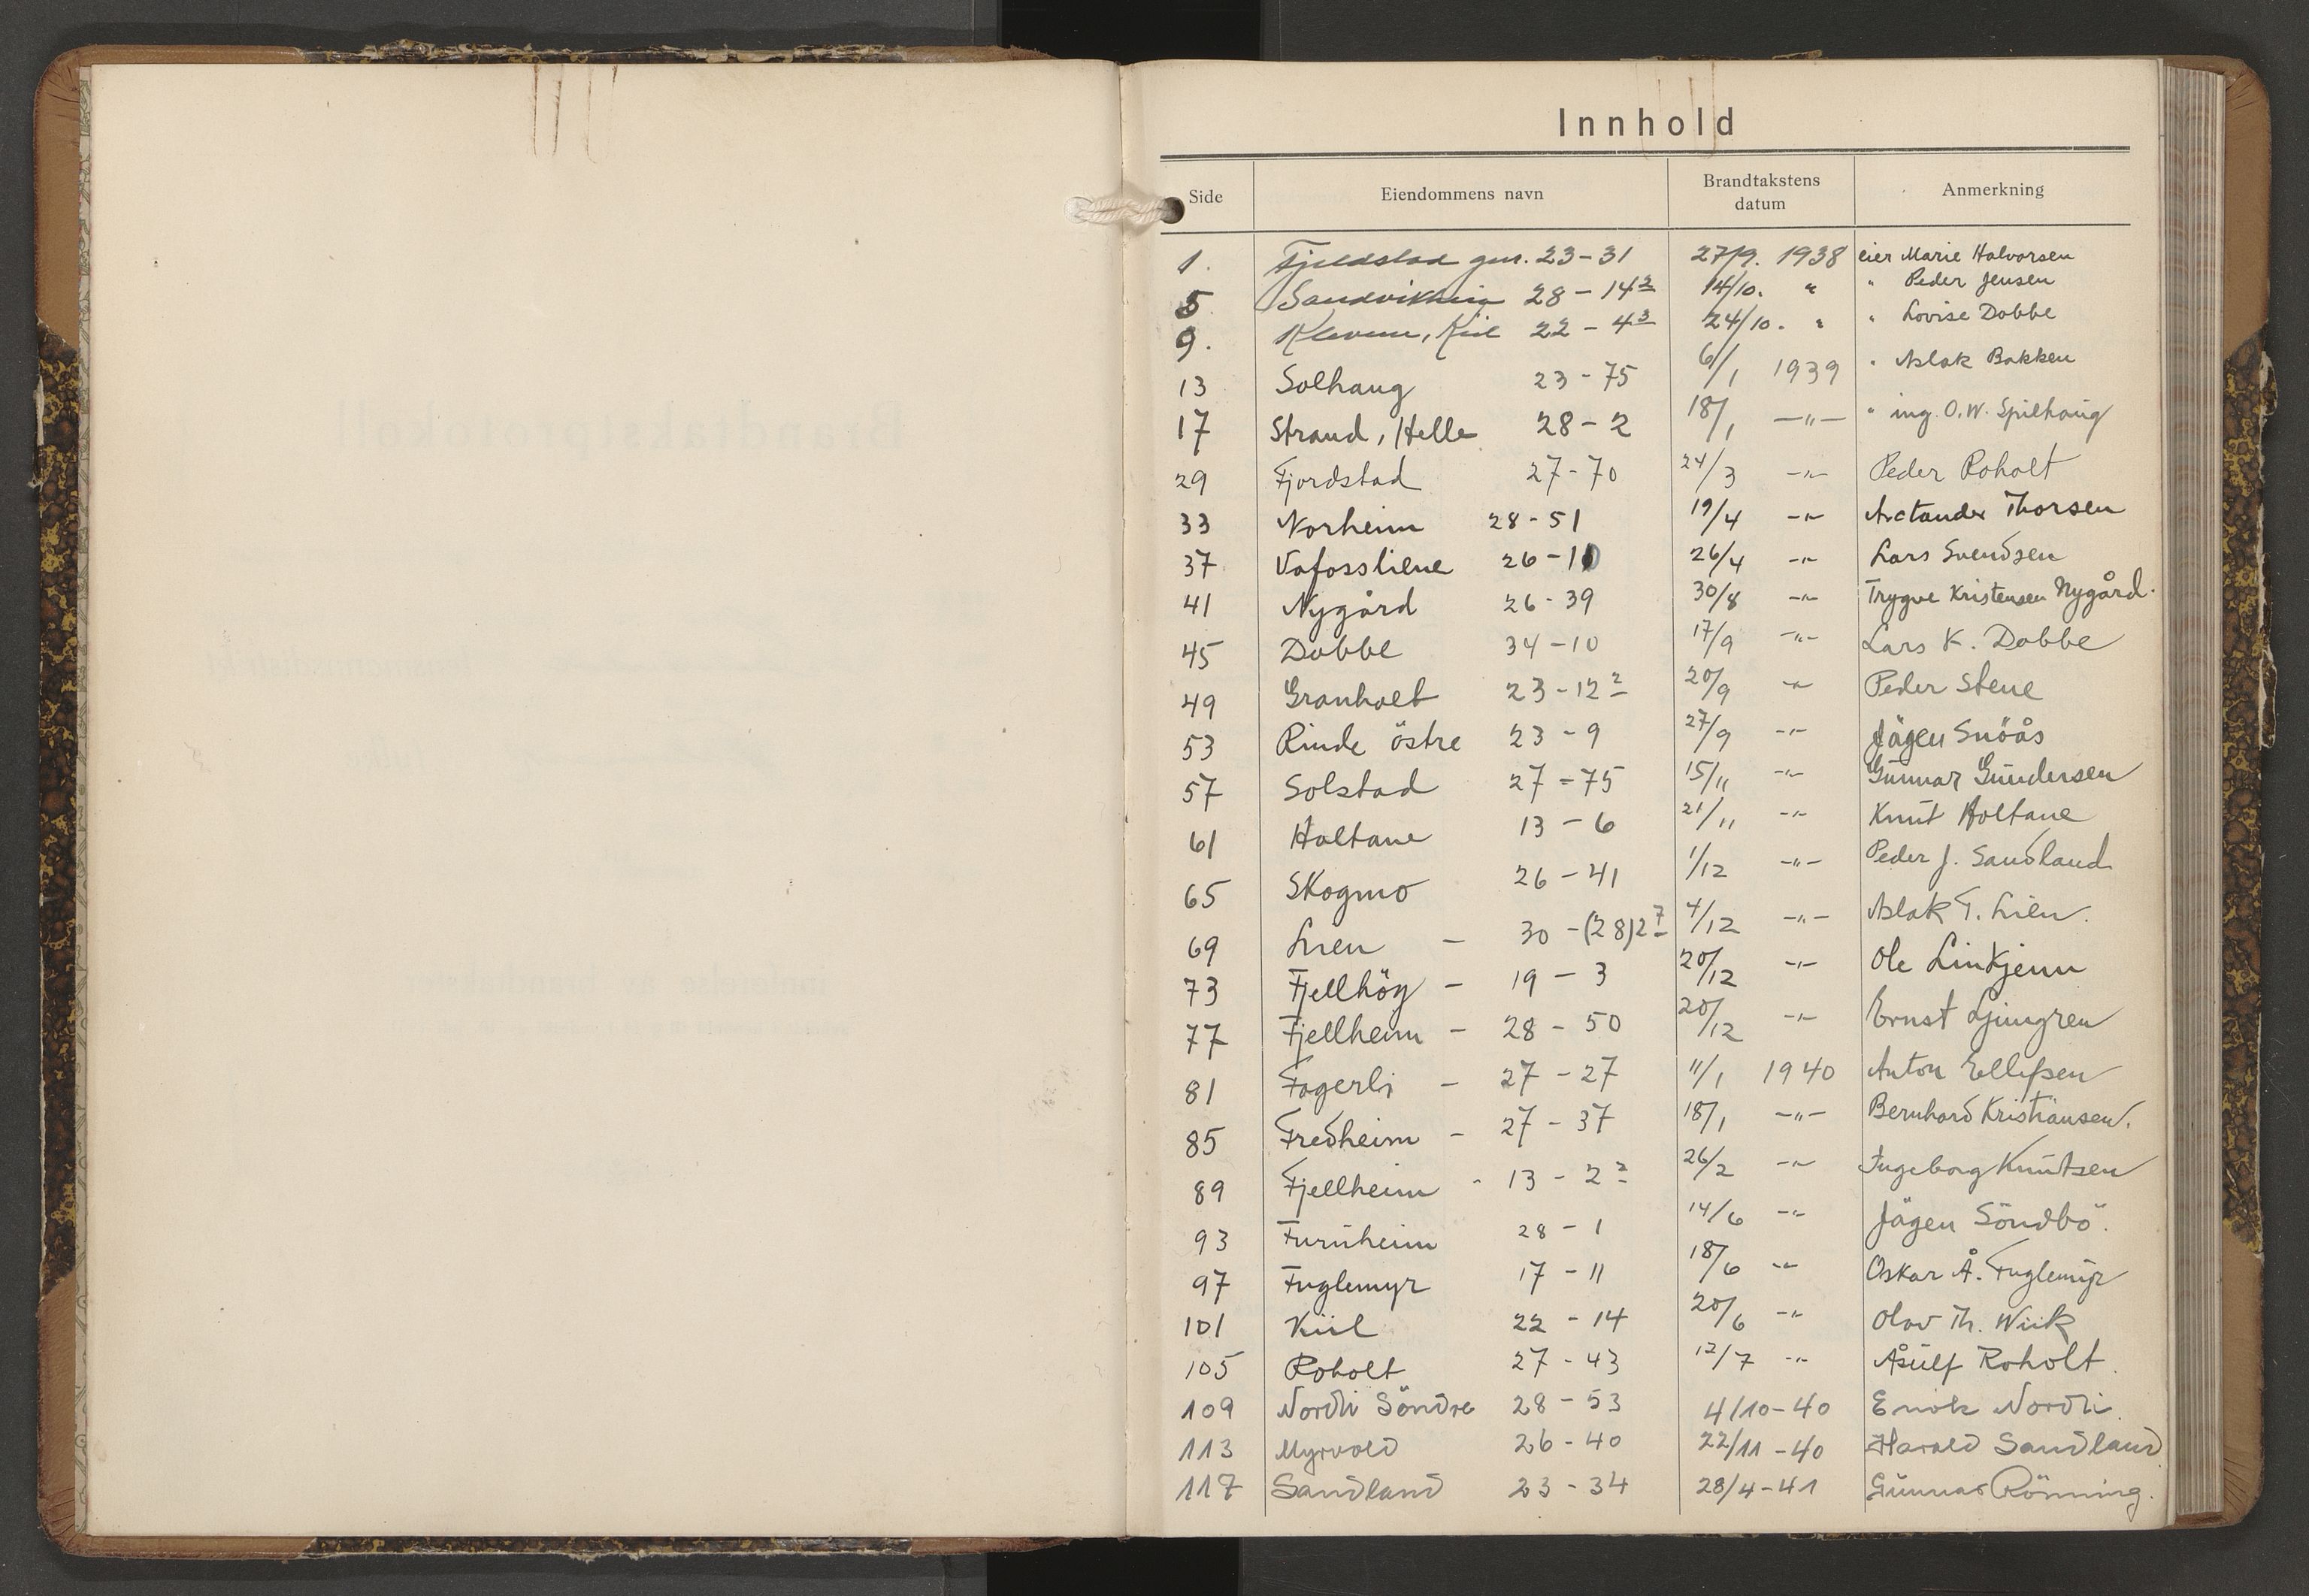 Innhold
Side Eiendommens navn Brandtakstens datum Anmerkning
1. Fjeldstad gnr. 23-31 27/9. 1938 eier Marie Halvorsen
5 Sandvikheia 28-14² 14/10. " " Peder Jensen
9. Klevene, Kiil 22-4³ 24/10. " " Lovise Dobbe
13 Solhaug 23-75 6/1 1939 " Aslak Bakken
17 Strand, Helle 28-2 18/1 -"- " ing. O.W. Spilhaug
29 Fjordstad 27-70 24/3 -"- Peder Roholt
33 Norheim 28-51 19/4 -"- Arctander Thorsen
37 Vafossliene 26-10 26/4 -"- Lars Svendsen
41 Nygård 26-39 30/8 -"- Trygve Kristensen Nygård.
45 Dobbe 34-10 17/9 -"- Lars K. Dobbe
49 Granholt 23-12² 20/9 -"- Peder Stene
53 Rinde östre 23-9 27/9 -"- Jägen Snöås
57 Solstad 27-75 15/11 -"- Gunnar Gundersen
61 Holtane 13-6 21/11 -"- Knut Holtane
65 Skogmo 26-41 1/12 -"- Peder J. Sandland
69 Lien - 30-(28)2⁷ 4/12 -"- Aslak T. Lien.
73 Fjellhög - 19-3 20/12 -"- Ole Linkjenn
77 Fjellheim - 28-50 20/12 -"- Ernst Ljungren
81 Fagerli - 27-27 11/1 1940 Anton Ellefsen
85 Fredheim - 27-37 18/1 -"- Bernhard Kristiansen.
89 Fjellheim - 13-2² 26/2 -"- Ingeborg Knutsen
93 Furuheim 28-1 14/6 -"- Jägen Söndbö.
97 Fuglemyr 17-11 18/6 -"- Oskar Å. Fuglemyr
101 Kiil 22-14 20/6 -"- Olav Th. Wiik
105 Roholt 27-43 12/7 -"- Åsulf Roholt.
109 Nordli Söndre 28-53 4/10-40 Enok Nordli.
113 Myrvold 26-40 22/11-40 Harald Sandland.
117 Sandland 23-34 28/4-41 Gunnar Rönning.